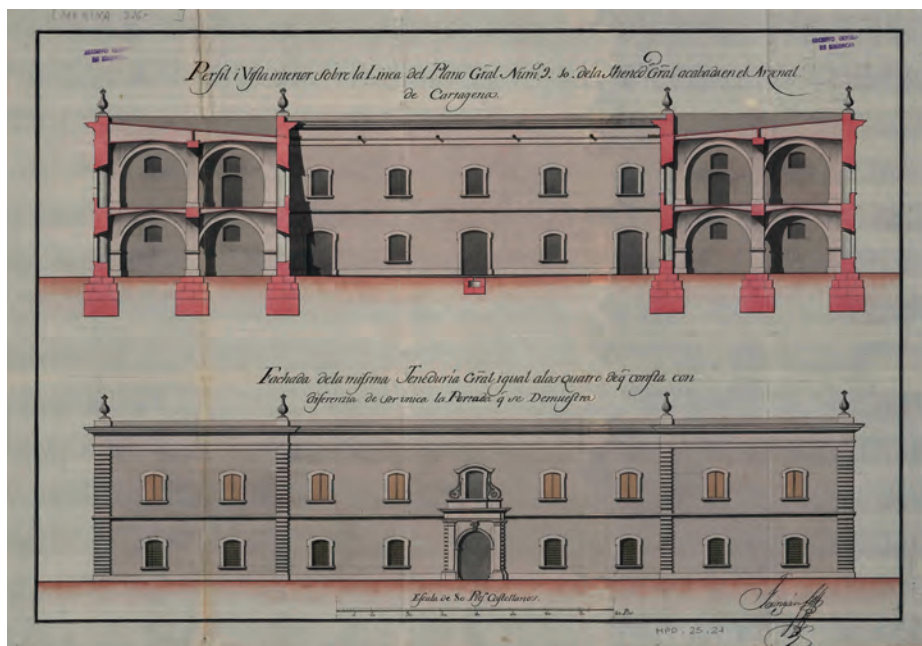 [MARINA 326- ]
ARCHIVO GENERAL
DE SIMANCAS
ARCHIVO GENERAL
DE SIMANCAS
Perfil i Vista interior sobre la Linea del Plano Gral. Num.º 9. 10. dela Gral acabada en el Arsenal
de Cartagena.
Fachada dela misma Teneduría Gral igual alas quatro de q̃ consta con
diferentia de ser unica la Portada q̃ se Demuestra
Escala de 80 Pies Castellanos.
80 Pies
MPD. 25. 21